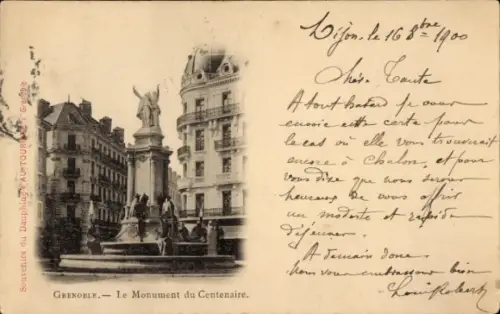 Dijon, le 16 8bre 1900
Chère Tante
A tout hasard je vous
envoie cette carte pour
le cas où elle vous trouverait
encore à Chalon, et pour
vous dire que nous serons
heureux de vous offrir
un modeste et rapide
déjeuner.
A demain donc.
Nous vous embrassons bien
Louis Robert
Souvenir du Dauphiné
GRENOBLE. — Le Monument du Centenaire.